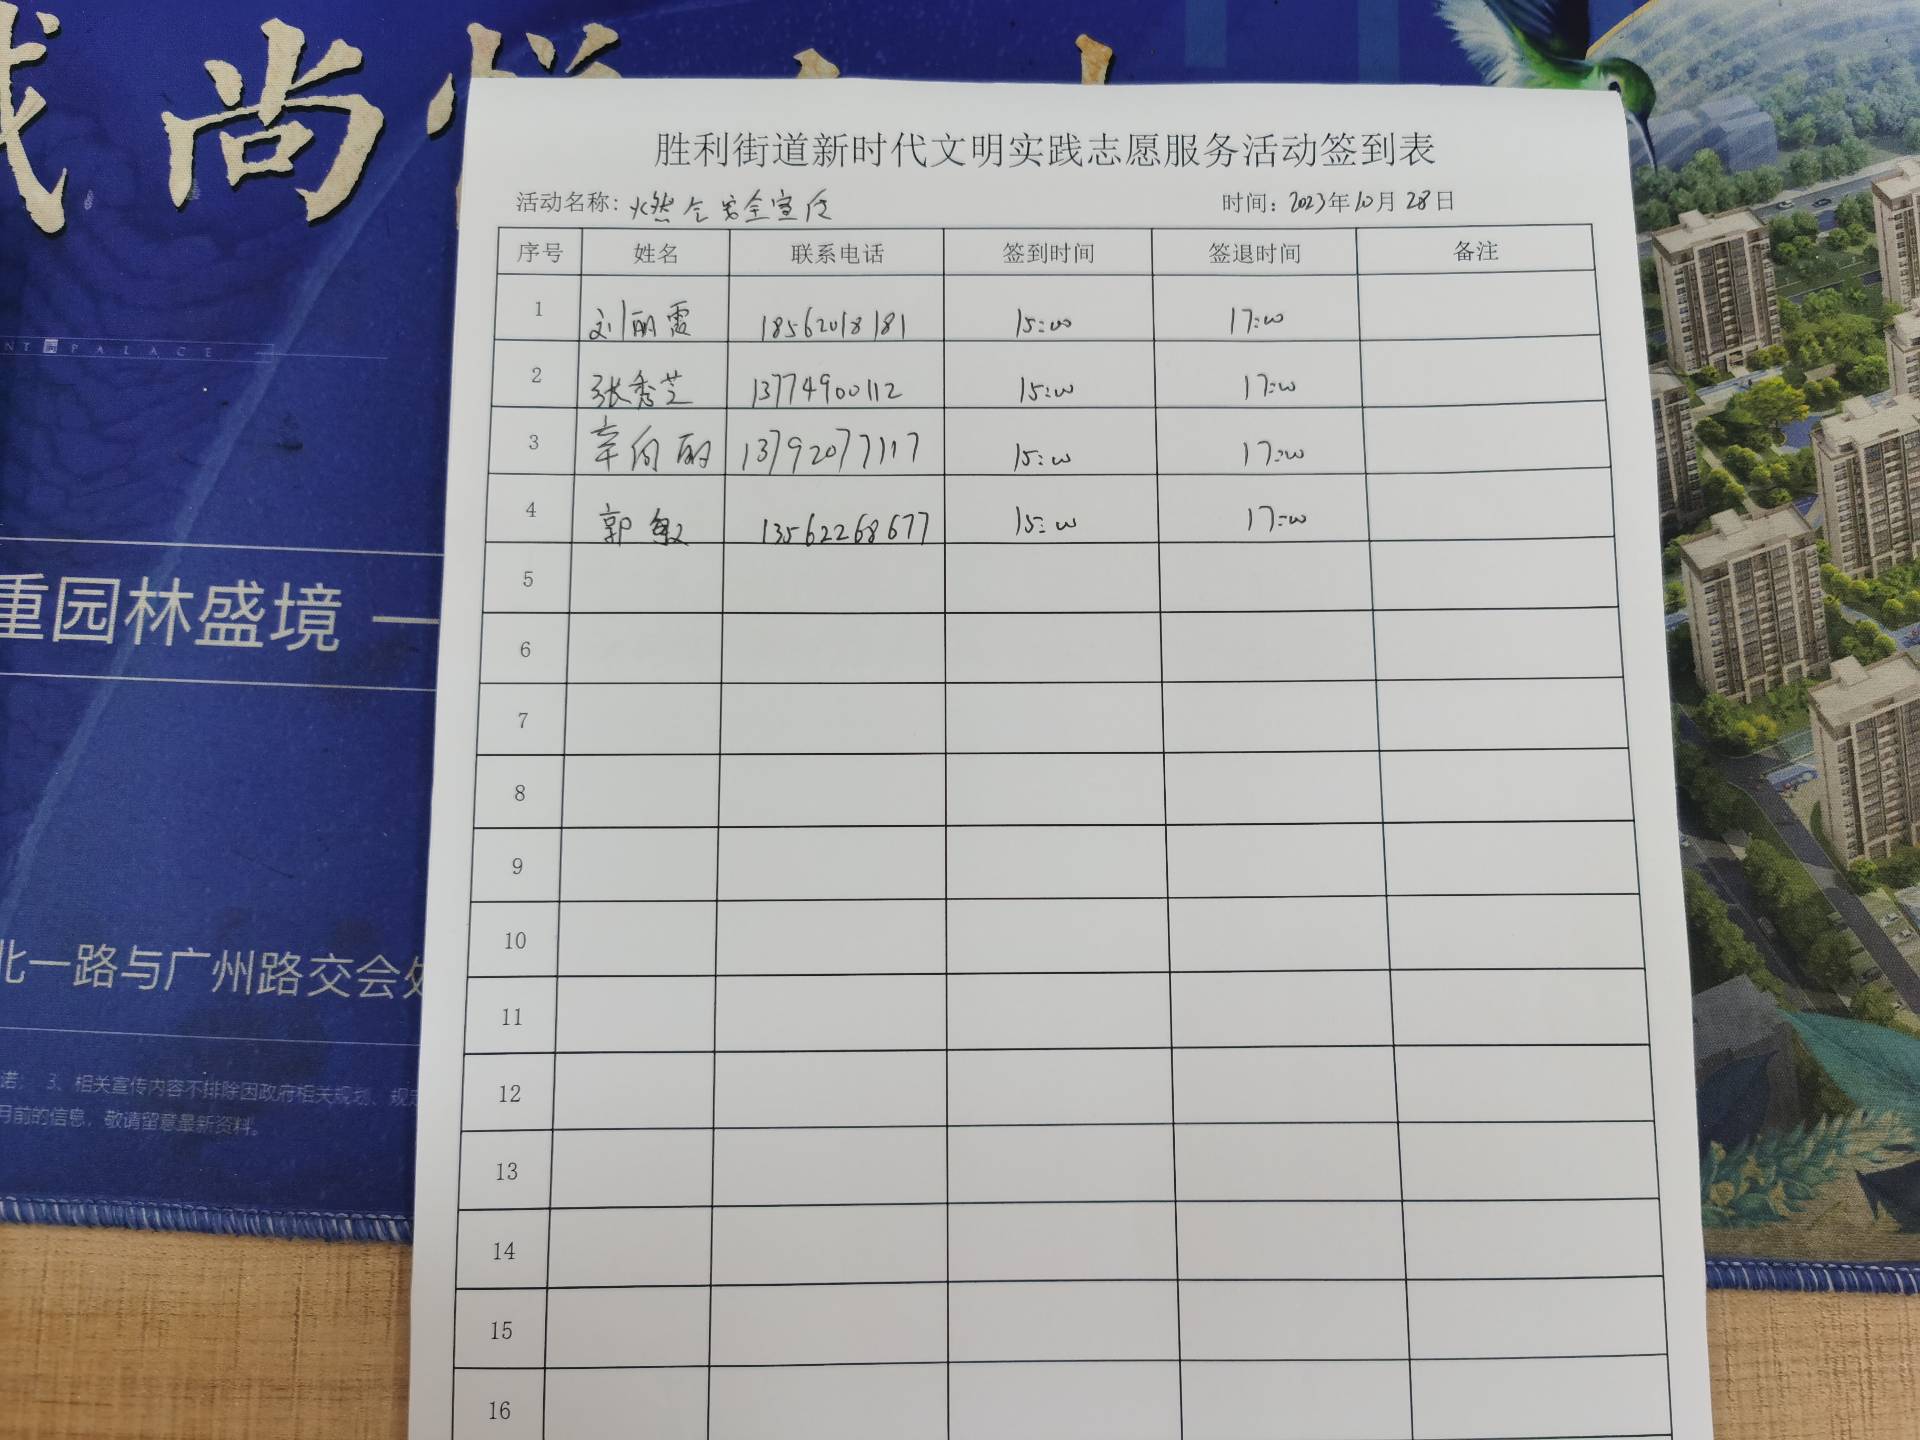 尚
NT PALACE
重园林盛境 一
北一路与广州路交会处
诺; 3、相关宣传内容不排除因政府相关规划、规定
月前的信息,敬请留意最新资料。
胜利街道新时代文明实践志愿服务活动签到表
活动名称: 燃气安全宣传 时间: 2023年10月28日
序号 姓名 联系电话 签到时间 签退时间 备注
1 刘丽霞 18562018181 15:00 17:00
2 张秀芝 13774900112 15:00 17:00
3 辛向丽 13792077117 15:00 17:00
4 郭敏 13562268677 15:00 17:00
5
6
7
8
9
10
11
12
13
14
15
16